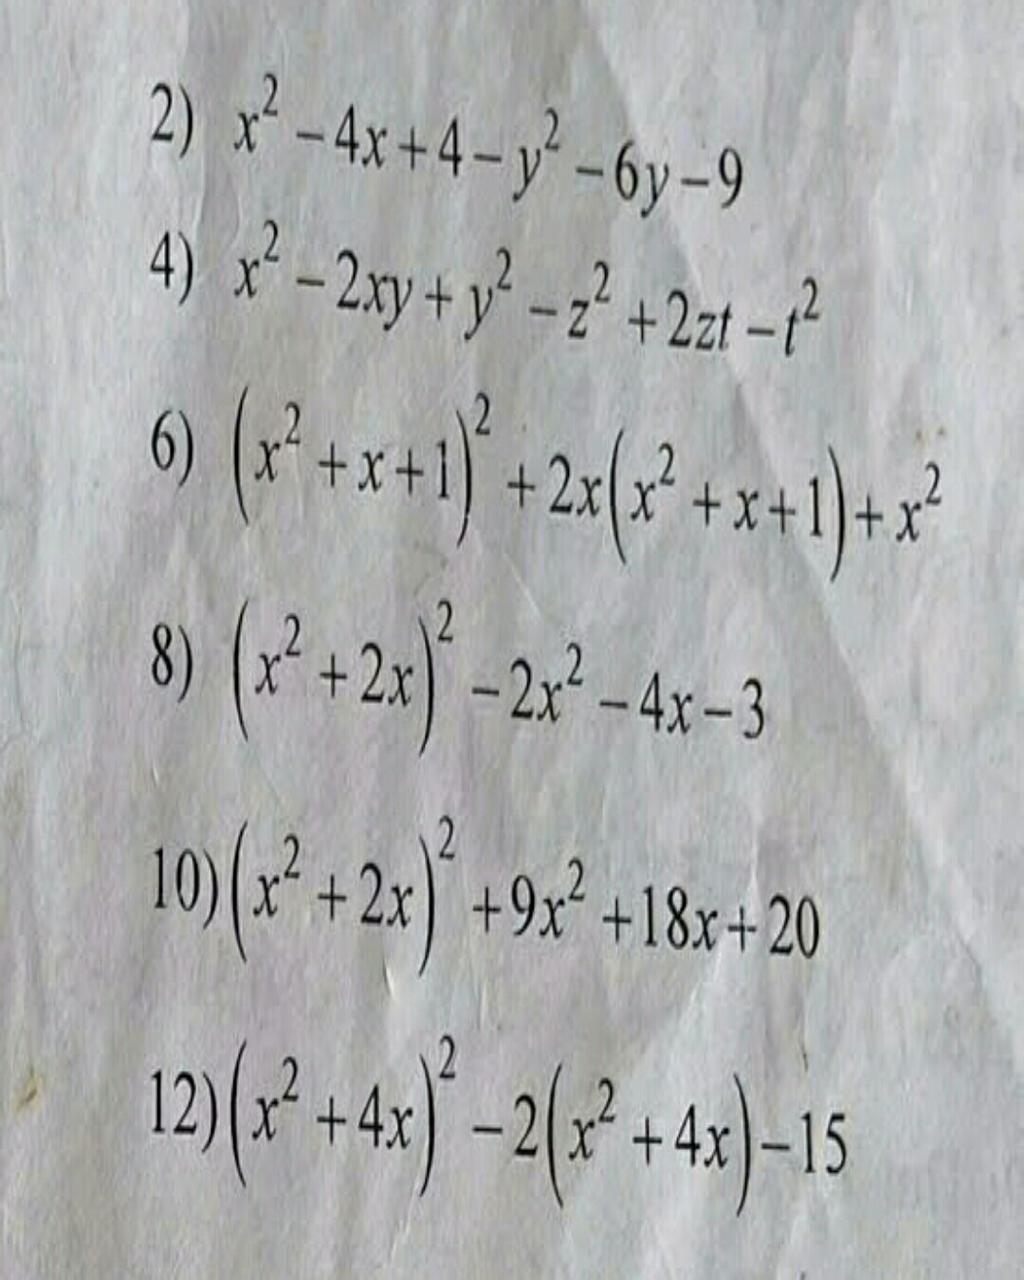 2) x² – 4x + 4 – y² – 6y – 9
4) x² – 2xy + y² – z² + 2zt – t²
6) (x² + x + 1)² + 2x(x² + x + 1) + x²
8) (x² + 2x)² – 2x² – 4x – 3
10) (x² + 2x)² + 9x² + 18x + 20
12) (x² + 4x)² – 2(x² + 4x) – 15